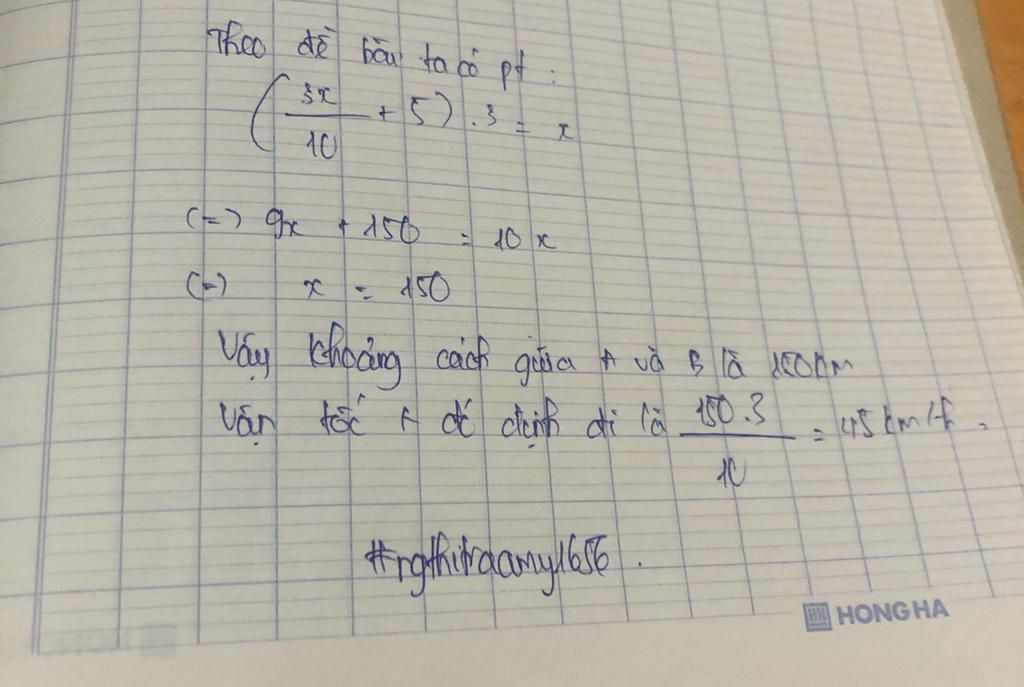 Theo đề bài ta có pt :
(3x/10 + 5) . 3 = x
(=) 9x + 150 = 10x
(=) x = 150
Vậy khoảng cách giữa A và B là 150km
Vận tốc A dự định đi là 150.3/10 = 45km/h.
#ngthitraamy1656.
HONG HA